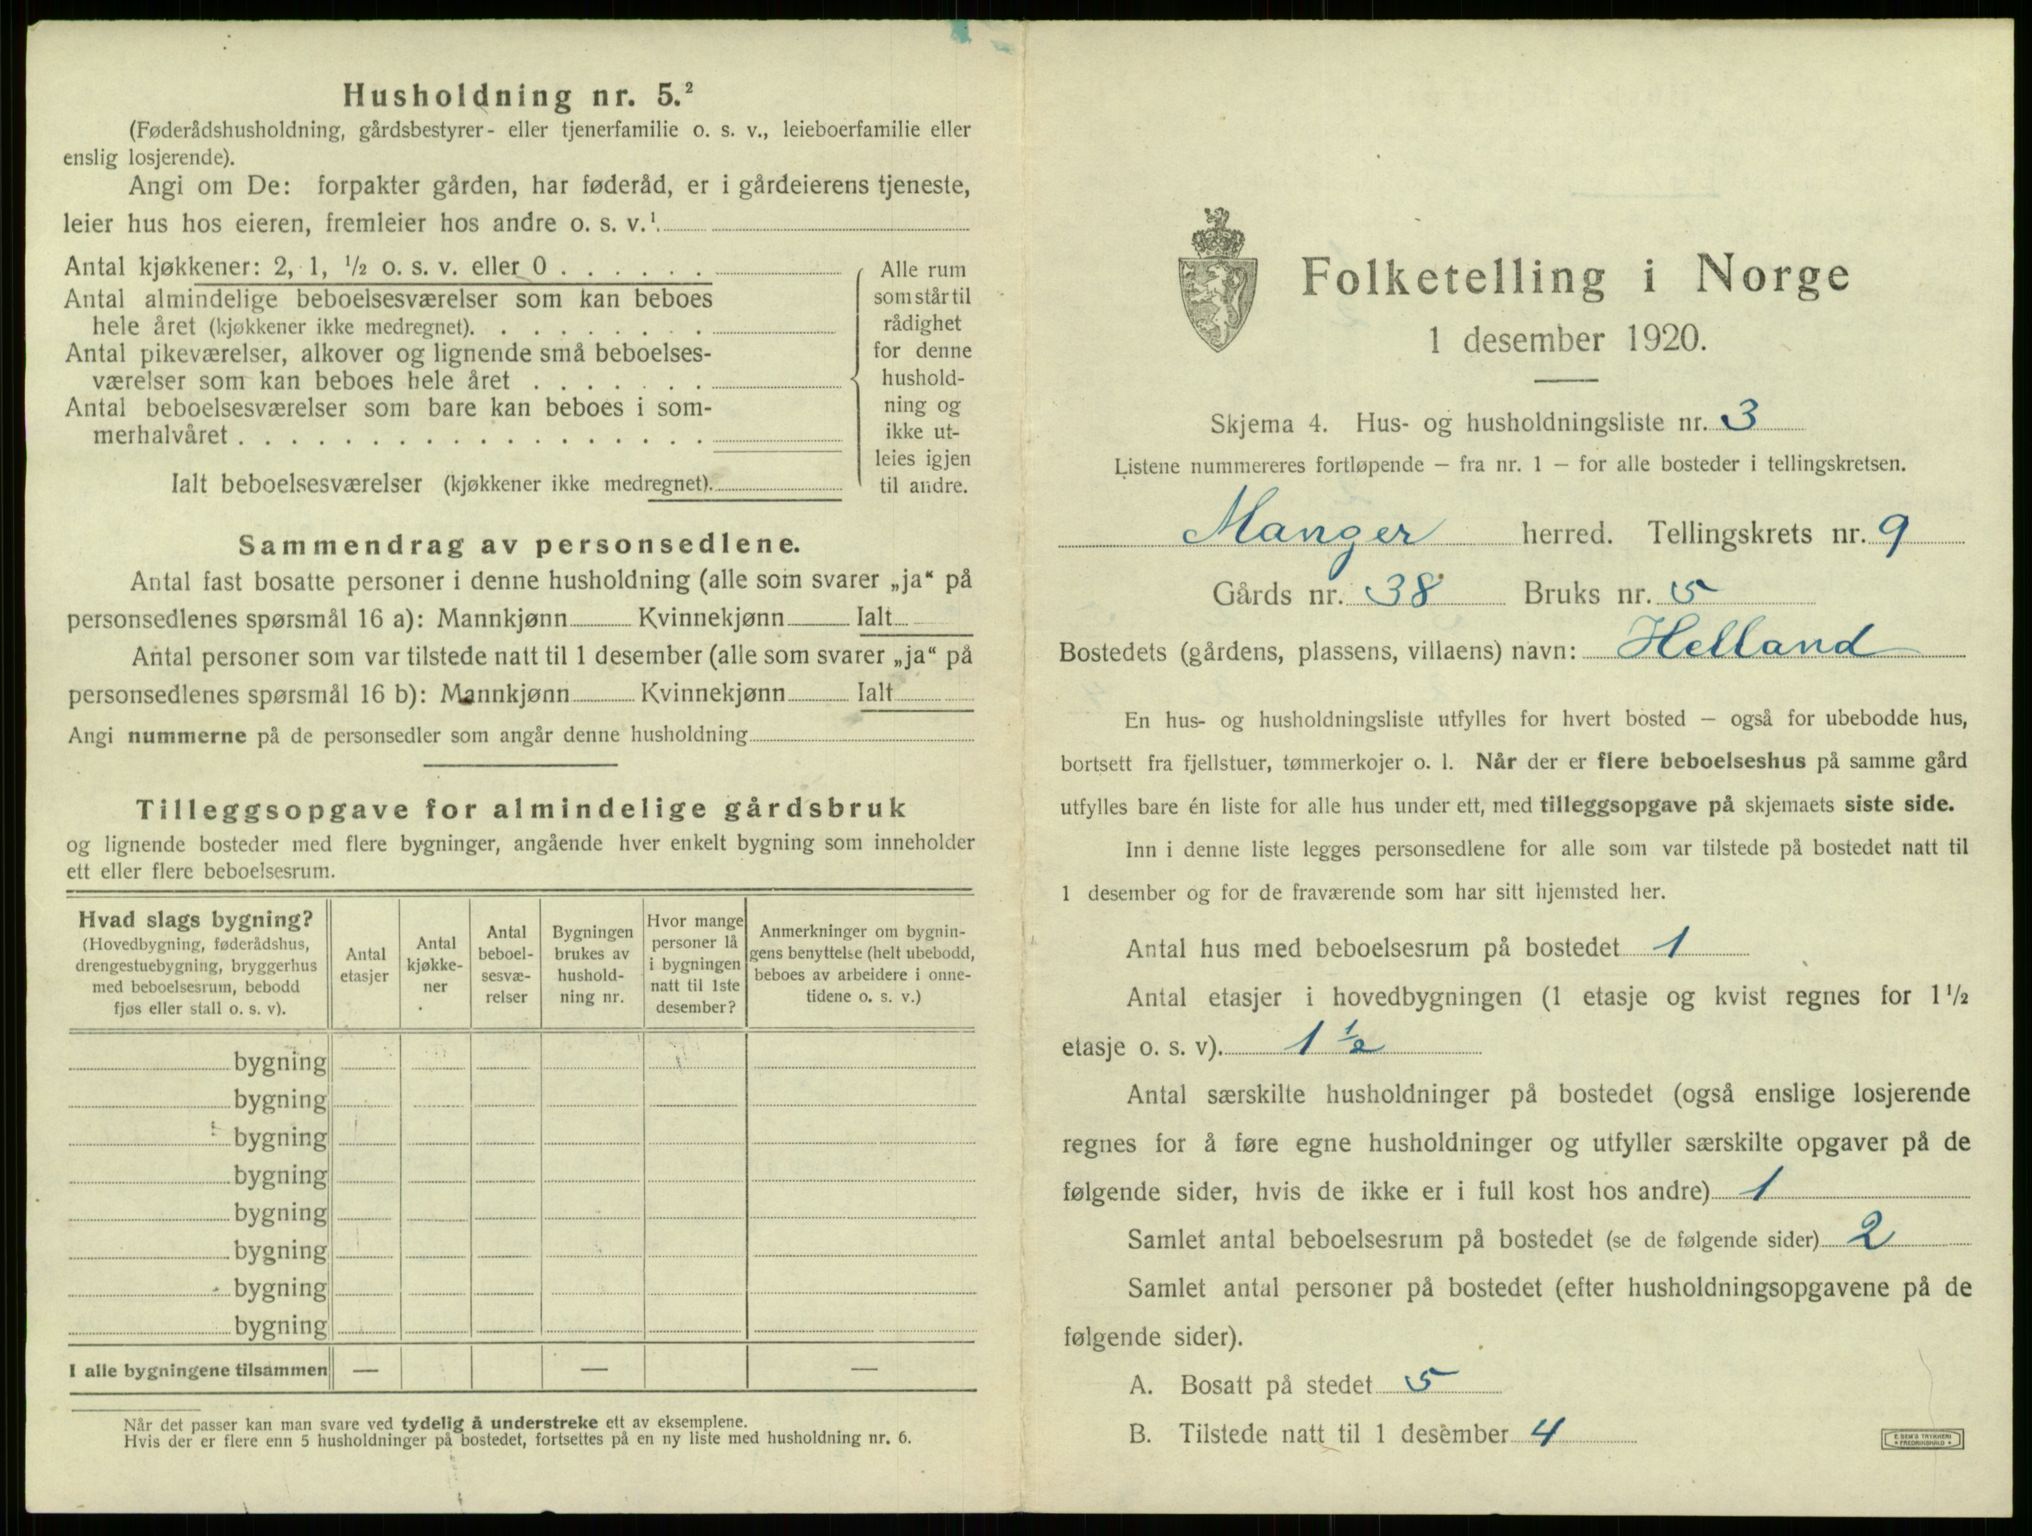 Husholdning nr. 5.²
(Føderådshusholdning, gårdsbestyrer- eller tjenerfamilie o. s. v., leieboerfamilie eller
enslig losjerende).
Angi om De: forpakter gården, har føderåd, er i gårdeierens tjeneste,
leier hus hos eieren, fremleier hos andre o. s. v.¹
Antal kjøkkener: 2, 1, ½ o. s. v. eller 0 . . . . . .
Antal almindelige beboelsesværelser som kan beboes
hele året (kjøkkener ikke medregnet). . . . . . . . .
Antal pikeværelser, alkover og lignende små beboelses-
værelser som kan beboes hele året . . . . . . .
Antal beboelsesværelser som bare kan beboes i som-
merhalvåret . . . . . . . . . . . . . . . . . .
Ialt beboelsesværelser (kjøkkener ikke medregnet).
Alle rum
som står til
rådighet
for denne
hushold-
ning og
ikke ut-
leies igjen
til andre.
Sammendrag av personsedlene.
Antal fast bosatte personer i denne husholdning (alle som svarer „ja“ på
personsedlenes spørsmål 16 a): Mannkjønn Kvinnekjønn Ialt
Antal personer som var tilstede natt til 1 desember (alle som svarer „ja“ på
personsedlenes spørsmål 16 b): Mannkjønn Kvinnekjønn Ialt
Angi nummerne på de personsedler som angår denne husholdning
Tilleggsopgave for almindelige gårdsbruk
og lignende bosteder med flere bygninger, angående hver enkelt bygning som inneholder
ett eller flere beboelsesrum.
Hvad slags bygning?
(Hovedbygning, føderådshus,
drengestuebygning, bryggerhus
med beboelsesrum, bebodd
fjøs eller stall o. s. v).
Antal
etasjer
Antal
kjøkke-
ner
Antal
beboel-
sesvæ-
relser
Bygningen
brukes av
hushold-
ning nr.
Hvor mange
personer lå
i bygningen
natt til 1ste
desember?
Anmerkninger om bygnin-
gens benyttelse (helt ubebodd,
beboes av arbeidere i onne-
tidene o. s. v.)
bygning
bygning
bygning
bygning
bygning
bygning
bygning
bygning
I alle bygningene tilsammen — — —
Når det passer kan man svare ved tydelig å understreke ett av eksemplene.
Hvis der er flere enn 5 husholdninger på bostedet, fortsettes på en ny liste med husholdning nr. 6.
Folketelling i Norge
1 desember 1920.
Skjema 4. Hus- og husholdningsliste nr. 3
Listene nummereres fortløpende – fra nr. 1 – for alle bosteder i tellingskretsen.
Manger herred. Tellingskrets nr. 9
Gårds nr. 38 Bruks nr. 5
Bostedets (gårdens, plassens, villaens) navn: Helland
En hus- og husholdningsliste utfylles for hvert bosted – også for ubebodde hus,
bortsett fra fjellstuer, tømmerkojer o. l. Når der er flere beboelseshus på samme gård
utfylles bare én liste for alle hus under ett, med tilleggsopgave på skjemaets siste side.
Inn i denne liste legges personsedlene for alle som var tilstede på bostedet natt til
1 desember og for de fraværende som har sitt hjemsted her.
Antal hus med beboelsesrum på bostedet 1
Antal etasjer i hovedbygningen (1 etasje og kvist regnes for 1½
etasje o. s. v). 1½
Antal særskilte husholdninger på bostedet (også enslige losjerende
regnes for å føre egne husholdninger og utfyller særskilte opgaver på de
følgende sider, hvis de ikke er i full kost hos andre) 1
Samlet antal beboelsesrum på bostedet (se de følgende sider) 2
Samlet antal personer på bostedet (efter husholdningsopgavene på de
følgende sider).
A. Bosatt på stedet 5
B. Tilstede natt til 1 desember 4
E. SEM'S TRYKKERI
FREDRIKSHALD